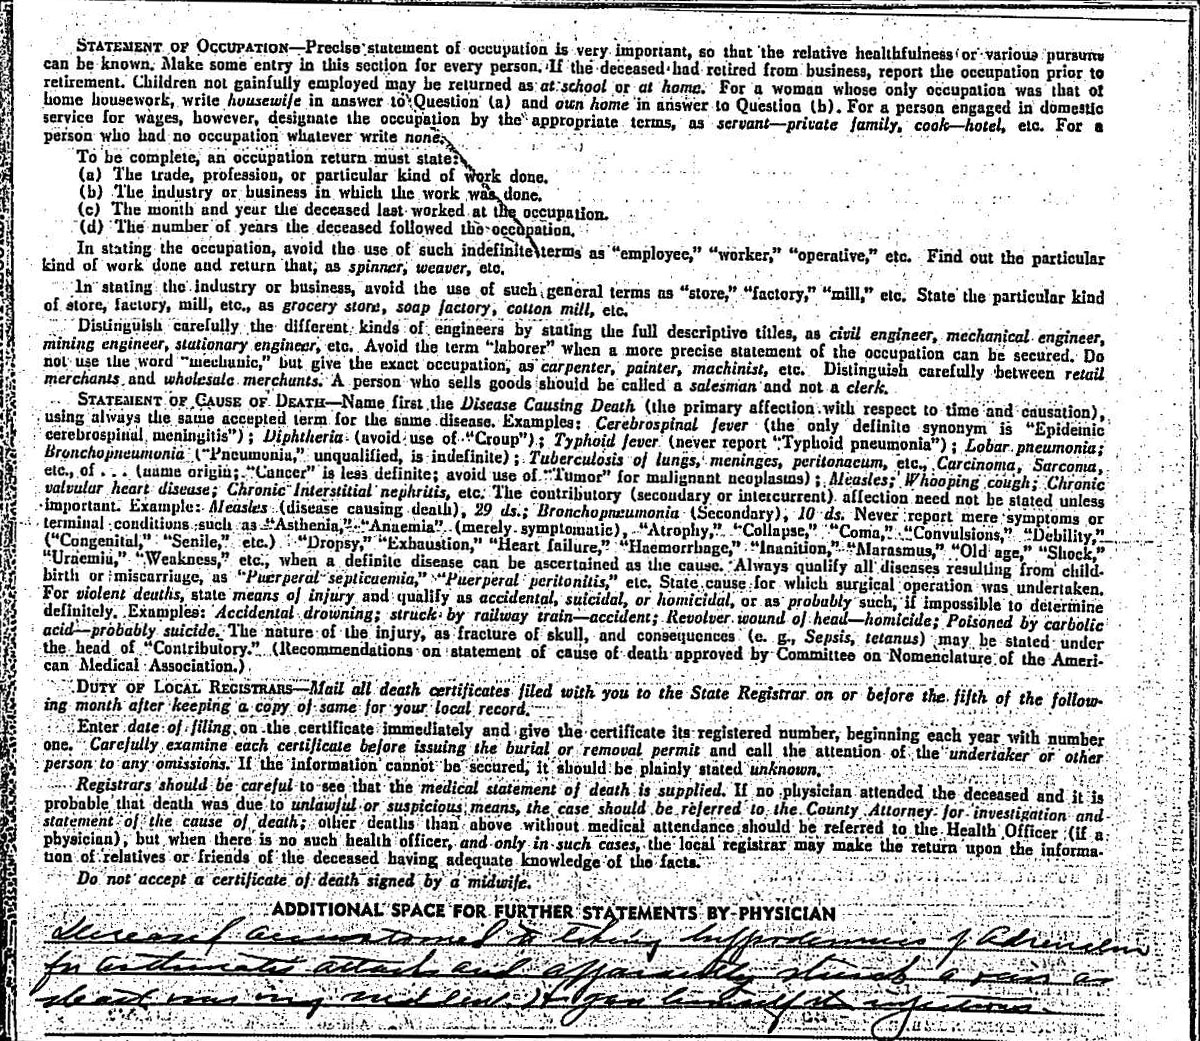 STATEMENT OF OCCUPATION—Precise statement of occupation is very important, so that the relative healthfulness or various pursuits
can be known. Make some entry in this section for every person. If the deceased had retired from business, report the occupation prior to
retirement. Children not gainfully employed may be returned as at school or at home. For a woman whose only occupation was that of
home housework, write housewife in answer to Question (a) and own home in answer to Question (b). For a person engaged in domestic
service for wages, however, designate the occupation by the appropriate terms, as servant—private family, cook—hotel, etc. For a
person who had no occupation whatever write none.
To be complete, an occupation return must state:
(a) The trade, profession, or particular kind of work done.
(b) The industry or business in which the work was done.
(c) The month and year the deceased last worked at the occupation.
(d) The number of years the deceased followed the occupation.
In stating the occupation, avoid the use of such indefinite terms as "employee," "worker," "operative," etc. Find out the particular
kind of work done and return that, as spinner, weaver, etc.
In stating the industry or business, avoid the use of such general terms as "store," "factory," "mill," etc. State the particular kind
of store, factory, mill, etc., as grocery store, soap factory, cotton mill, etc.
Distinguish carefully the different kinds of engineers by stating the full descriptive titles, as civil engineer, mechanical engineer,
mining engineer, stationary engineer, etc. Avoid the term "laborer" when a more precise statement of the occupation can be secured. Do
not use the word "mechanic," but give the exact occupation, as carpenter, painter, machinist, etc. Distinguish carefully between retail
merchants and wholesale merchants. A person who sells goods should be called a salesman and not a clerk.
STATEMENT OF CAUSE OF DEATH—Name first the Disease Causing Death (the primary affection with respect to time and causation),
using always the same accepted term for the same disease. Examples: Cerebrospinal fever (the only definite synonym is "Epidemic
cerebrospinal meningitis"); Diphtheria (avoid use of "Croup"); Typhoid fever (never report "Typhoid pneumonia"); Lobar pneumonia;
Bronchopneumonia ("Pneumonia," unqualified, is indefinite); Tuberculosis of lungs, meninges, peritonaeum, etc., Carcinoma, Sarcoma,
etc., of . . . (name origin; "Cancer" is less definite; avoid use of "Tumor" for malignant neoplasms); Measles; Whooping cough; Chronic
valvular heart disease; Chronic Interstitial nephritis, etc. The contributory (secondary or intercurrent) affection need not be stated unless
important. Example: Measles (disease causing death), 29 ds.; Bronchopneumonia (Secondary), 10 ds. Never report mere symptoms or
terminal conditions such as "Asthenia," "Anaemia" (merely symptomatic), "Atrophy," "Collapse," "Coma," "Convulsions," "Debility,"
("Congenital," "Senile," etc.) "Dropsy," "Exhaustion," "Heart failure," "Haemorrhage," "Inanition," "Marasmus," "Old age," "Shock,"
"Uraemia," "Weakness," etc., when a definite disease can be ascertained as the cause. Always qualify all diseases resulting from child-
birth or miscarriage, as "Puerperal septicaemia," "Puerperal peritonitis," etc. State cause for which surgical operation was undertaken.
For violent deaths, state means of injury and qualify as accidental, suicidal, or homicidal, or as probably such, if impossible to determine
definitely. Examples: Accidental drowning; struck by railway train—accident; Revolver wound of head—homicide; Poisoned by carbolic
acid—probably suicide. The nature of the injury, as fracture of skull, and consequences (e. g., Sepsis, tetanus) may be stated under
the head of "Contributory." (Recommendations on statement of cause of death approved by Committee on Nomenclature of the Ameri-
can Medical Association.)
DUTY OF LOCAL REGISTRARS—Mail all death certificates filed with you to the State Registrar on or before the fifth of the follow-
ing month after keeping a copy of same for your local record.
Enter date of filing on the certificate immediately and give the certificate its registered number, beginning each year with number
one. Carefully examine each certificate before issuing the burial or removal permit and call the attention of the undertaker or other
person to any omissions. If the information cannot be secured, it should be plainly stated unknown.
Registrars should be careful to see that the medical statement of death is supplied. If no physician attended the deceased and it is
probable that death was due to unlawful or suspicious means, the case should be referred to the County Attorney for investigation and
statement of the cause of death; other deaths than above without medical attendance should be referred to the Health Officer (if a
physician), but when there is no such health officer, and only in such cases, the local registrar may make the return upon the informa-
tion of relatives or friends of the deceased having adequate knowledge of the facts.
Do not accept a certificate of death signed by a midwife.
ADDITIONAL SPACE FOR FURTHER STATEMENTS BY PHYSICIAN
Deceased accustomed to taking hypodermics of Adrenalin
for asthmatic attacks and apparently struck a vein as
death was very sudden. He gave himself the injections.